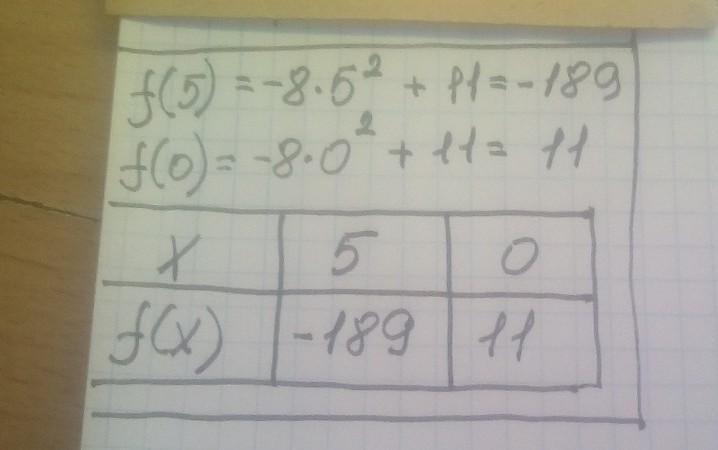 f(5) = -8·5² + 11 = -189
f(0) = -8·0² + 11 = 11
x 5 0
f(x) -189 11